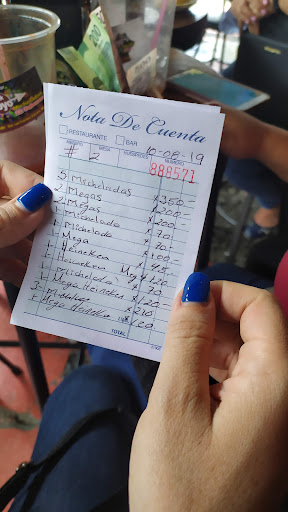 Nota De Cuenta
RESTAURANTE BAR
MESA NUMERO
# 2 10-08-19
888571
5 Micheladas $350-
2 Megas $200-
2 Megas $200
1 Michelada $70
1 Mega
1 Michelada $70
1 Mega
1 Heineken
1 Heineken
1 Michelada $70
1 Mega Heineken $120
3 Micheladas $210
1 Mega Heineken
TOTAL